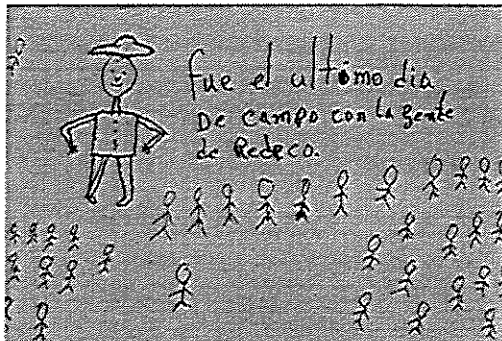 fue el ultimo dia
De campo con la gente
de Redeco.